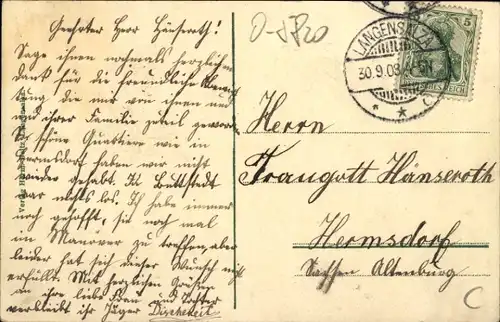 Geehrter Herr Hänseroth!
Sage ihnen nochmals herzlichen
Dank für die freundliche
die mir von ihnen und
und ihrer Familie zuteil geworden
So schöne Quartiere wie in
Hermsdorf haben wir nicht
wieder gehabt. In Büttstedt
war nichts los. Ich habe immer
noch gehofft, sie noch mal
im Manöver zu treffen, aber
leider hat sich dieser Wunsch nicht
erfüllt. Mit herzlichen Grüßen
an ihre liebe Frau und Tochter
verbleibt ihr Jäger
LANGENSALZA
30.9.08
C
5
Herrn
Traugott Hänseroth
Hermsdorf
Sachsen Altenburg
C